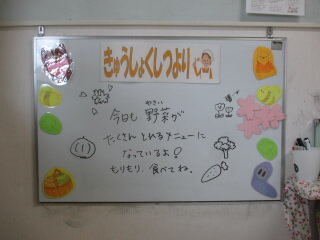 きゅうしょくしつより
今日も 野菜が
やさい
たくさん とれるメニューに
なっているよ!
もりもり、食べてね。